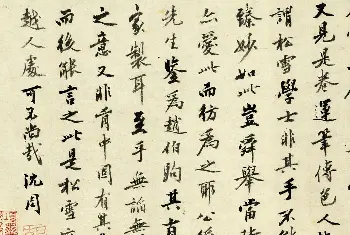 又見是卷運筆傅色人
謂松雪學士非其手不能
臻妙如此豈舜舉當
亦愛此而彷為之耶
先生鑒為趙伯駒其
家製耳至乎無諂無
之意又非胷中固有其
而後能言之此是松雪
越人處可不尚哉沈周